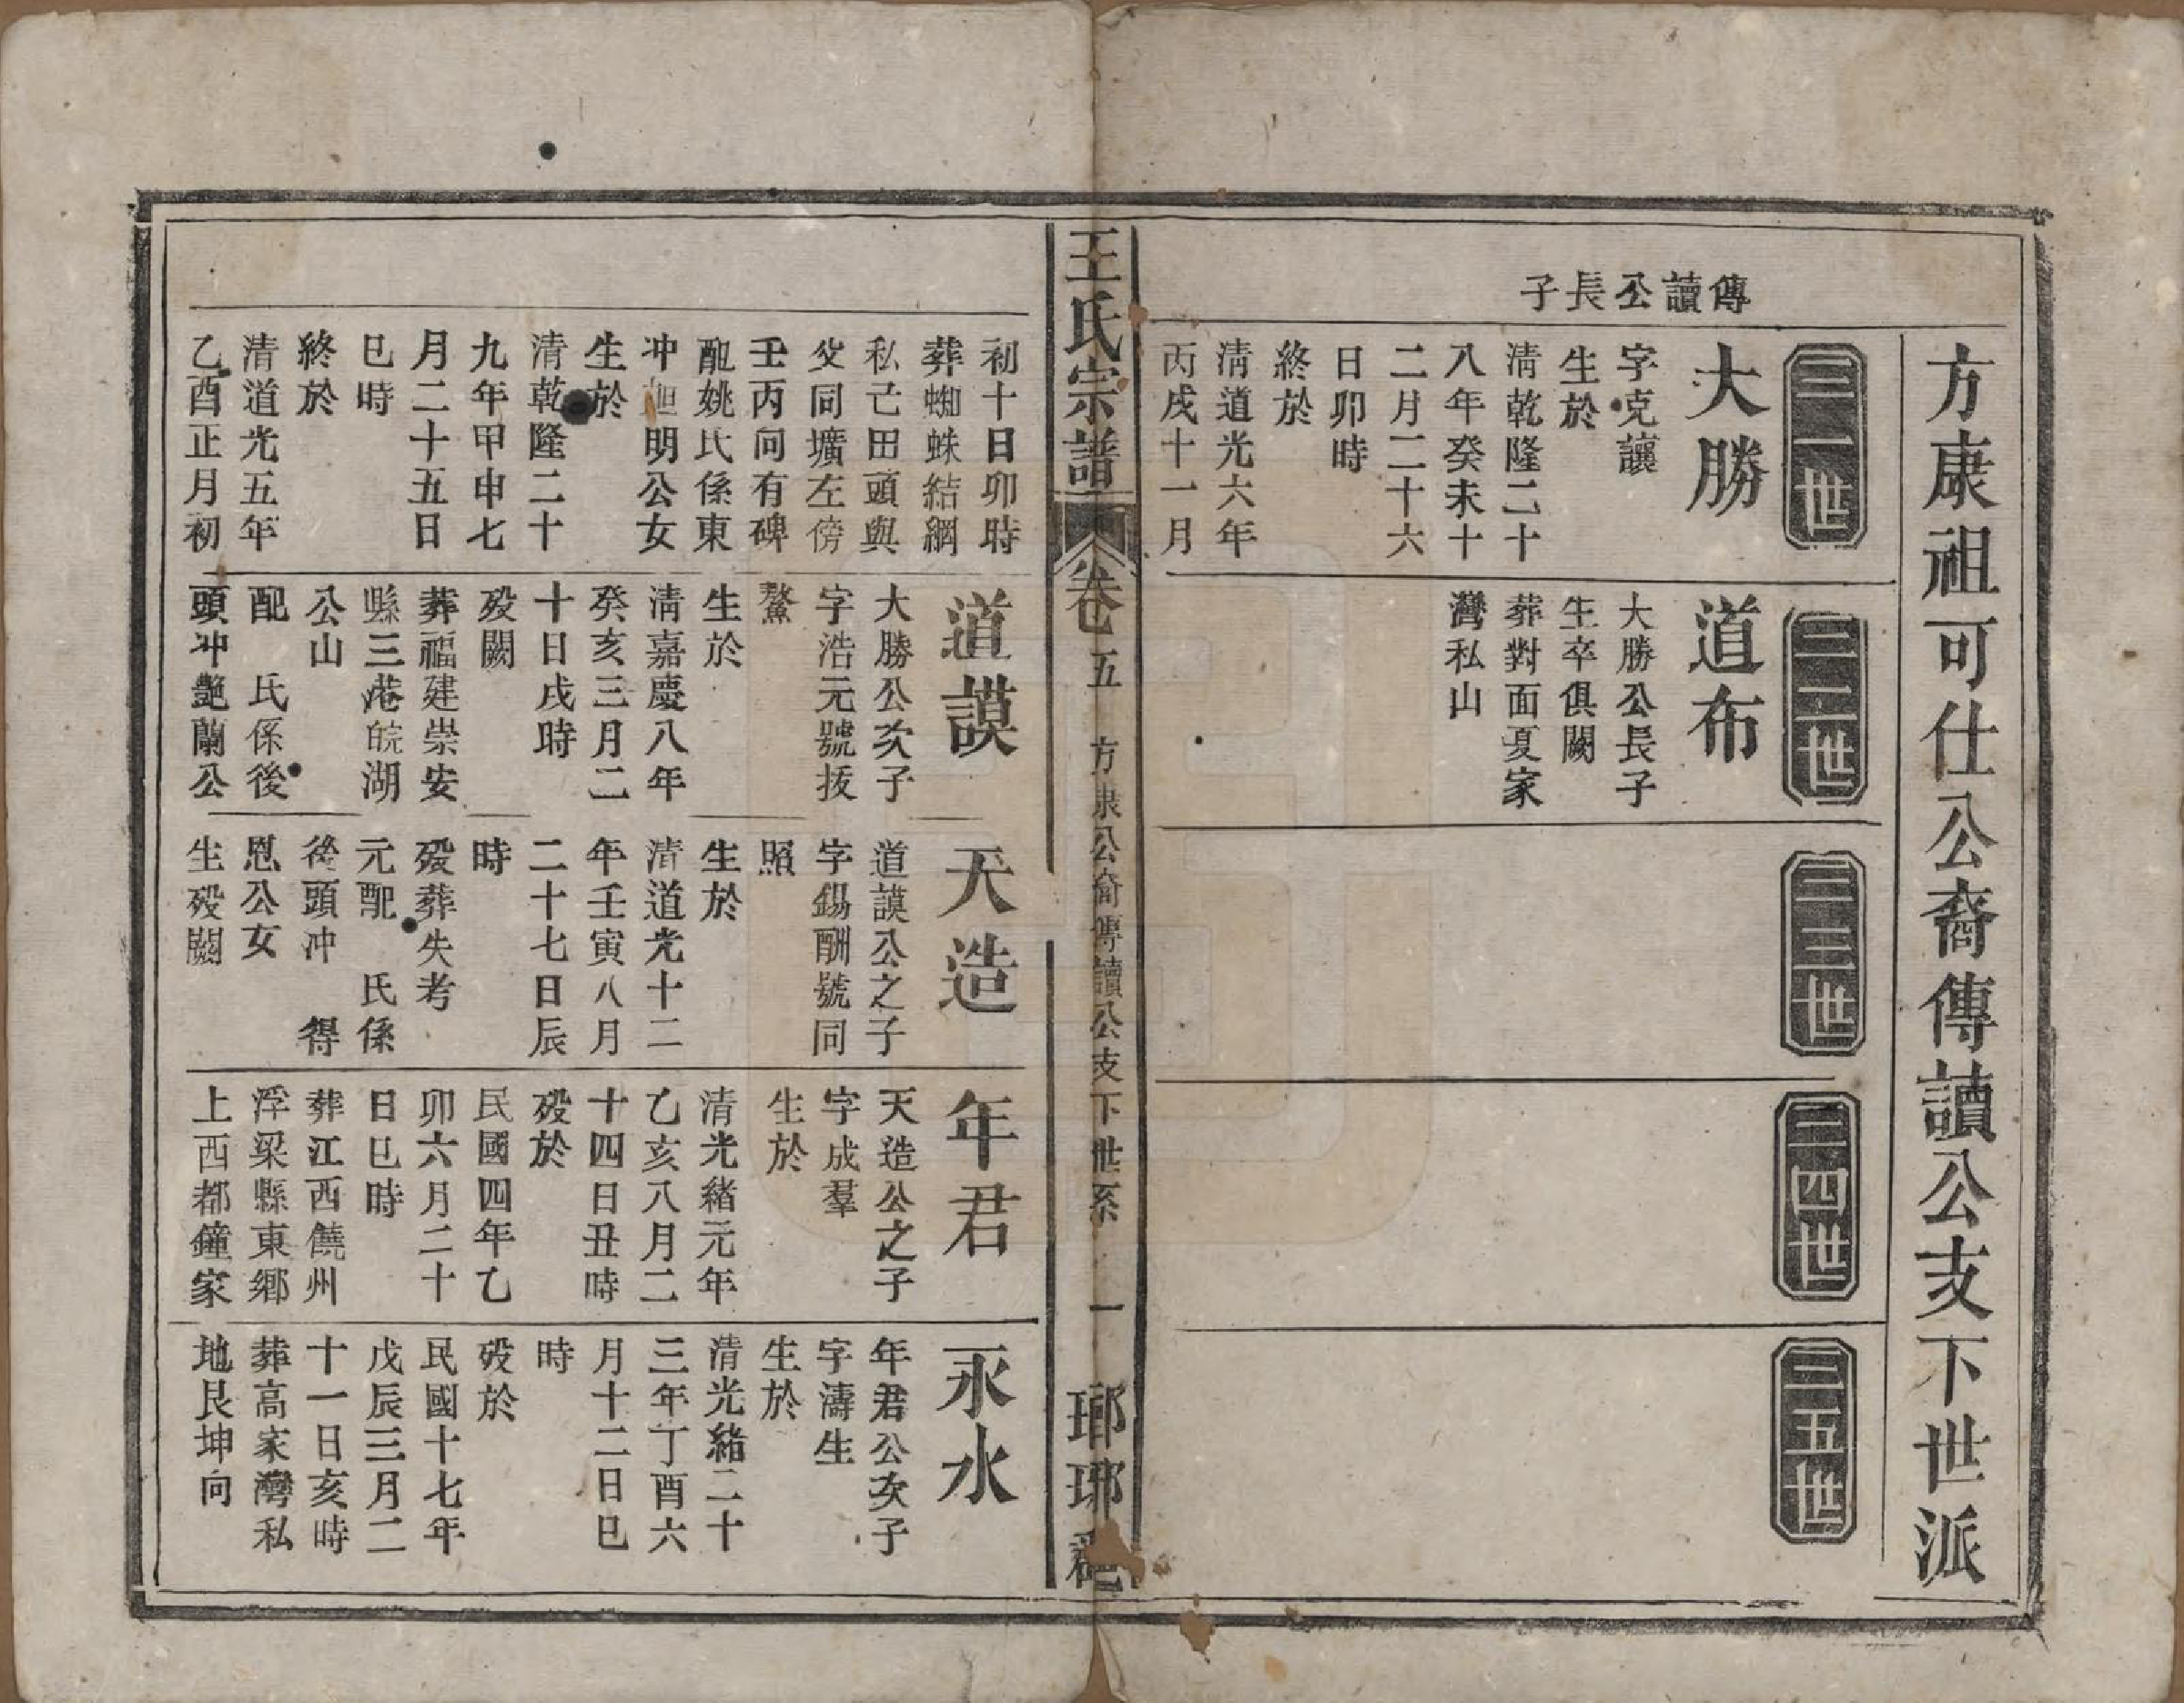 方康祖可仕公裔傳讀公支下世派
傳讀公長子
三一世
大勝
字克讓
生於
清乾隆二十
八年癸未十
二月二十六
日卯時
終於
清道光六年
丙戌十一月
三二世
道布
大勝公長子
生卒俱闕
葬對面夏家
灣私山
三三世
三四世
三五世
王氏宗譜
卷五
方康公裔傳讀公支下世系
一
瑯琊
初十日卯時
葬蜘蛛結網
私己田頭與
父同壙左傍
壬丙向有碑
配姚氏係東
冲 明公女
生於
清乾隆二十
九年甲申七
月二十五日
巳時
終於
清道光五年
乙酉正月初
道謨
大勝公次子
字浩元號拔
鰲
生於
清嘉慶八年
癸亥三月二
十日戌時
歿闕
葬福建崇安
縣三港皖湖
公山
配 氏係後
頭冲艶蘭公
天造
道謨公之子
字錫酬號同
照
生於
清道光十二
年壬寅八月
二十七日辰
時
歿葬失考
元配 氏係
後頭冲 得
恩公女
生歿闕
年君
天造公之子
字成羣
生於
清光緒元年
乙亥八月二
十四日丑時
歿於
民國四年乙
卯六月二十
日巳時
葬江西饒州
浮梁縣東鄉
上西都鐘家
永水
年君公次子
字濤生
生於
清光緒二十
三年丁酉六
月十二日巳
時
歿於
民國十七年
戊辰三月二
十一日亥時
葬高家灣私
地艮坤向